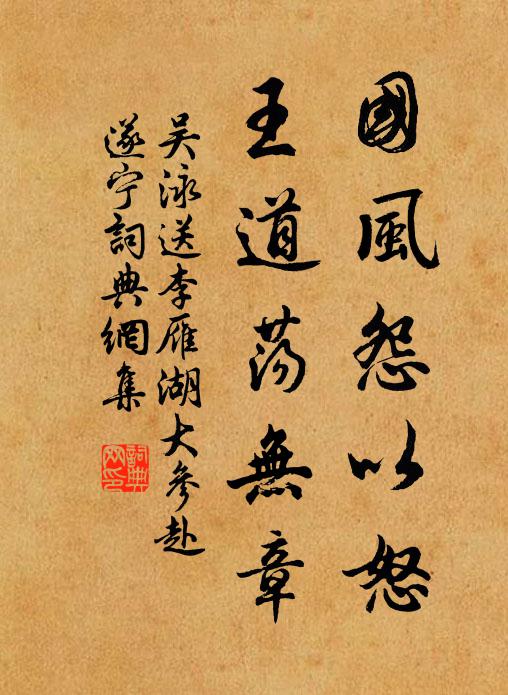 國風怨以怒
王道蕩無章
吴泳送李雁湖大參赴
遂宁詞典網集
詞典網印